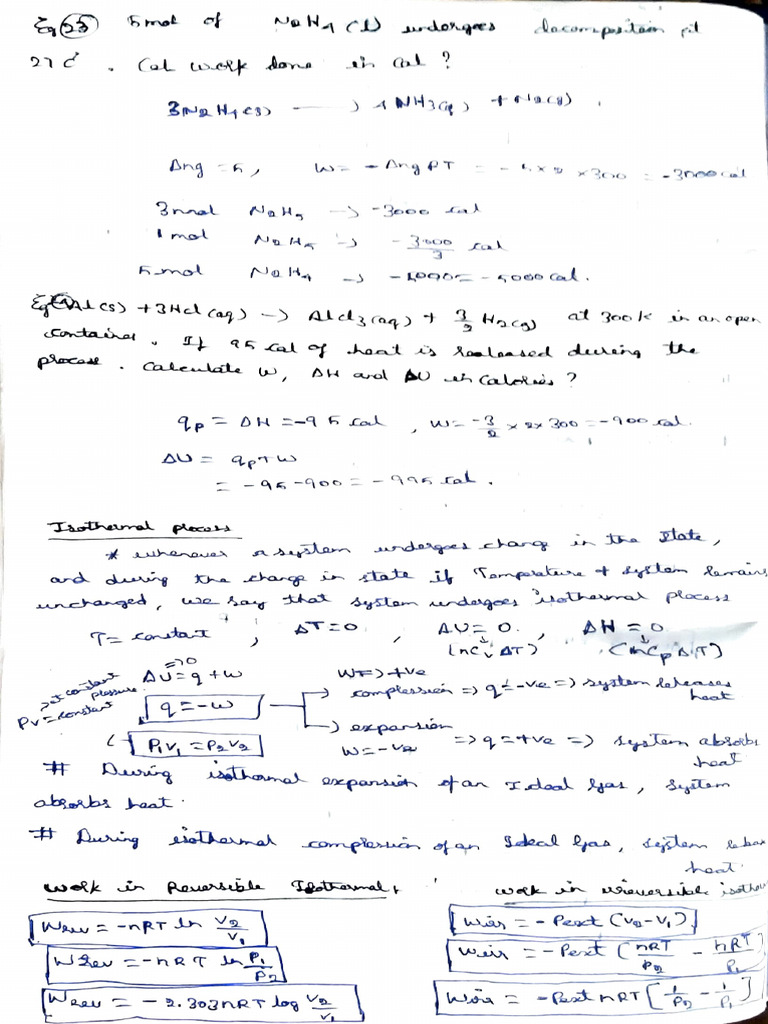 Eg 23 5 mol of N2H4 (l) undergoes decomposition at
27 C°. Cal work done in cal?
3N2H4(g) → 4NH3(g) + N2(g).
Δng = 5, W = -ΔngRT = -5×2×300 = -3000 cal
3 mol N2H4 → -3000 cal
1 mol N2H4 → -3000/3 cal
5 mol N2H4 → = -5000 cal.
Eg Al(s) + 3Hcl(aq) → Alcl3(aq) + 3/2 H2(g) at 300k in an open
container. If 95 cal of heat is realeased during the
process. Calculate W, ΔH and ΔU in calories?
qp = ΔH = -95 cal, W = -3/2 × 2 × 300 = -900 cal.
ΔU = qp + w
= -95 - 900 = -995 cal.
Isothermal process
* whenever a system undergoes change in the state,
and during the change in state if Temperature of system remains
unchanged, we say that system undergoes isothermal process
T = constant, ΔT = 0, ΔU = 0, ΔH = 0
(nCvΔT) (nCpΔT)
=> 0
ΔU = q + w
at constant pressure
PV = constant
q = -w
W => +ve
compression => q = -ve => system releases heat
expansion
W = -ve => q = +ve => system absorbs heat
P1V1 = P2V2
# During isothermal expansion of an Ideal Gas, system
absorbs heat.
# During isothermal compression of an Ideal Gas, system
heat.
Work in Reversible Isothermal work in irreversible
Wrev = -nRT ln V2/V1 Wirr = -Pext (V2 - V1)
Wrev = -nRT ln P1/P2 Wirr = -Pext (nRT/P2 - nRT/P1)
Wrev = -2.303nRT log V2/V1 Wirr = -Pext nRT [1/P2 - 1/P1]